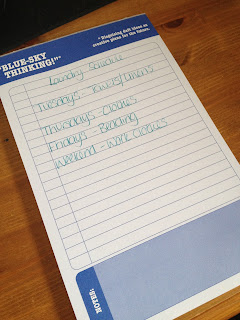 "BLUE-SKY
THINKING!"*
* Disguising daft ideas as
creative plans for the future.
Laundry Schedule
Tuesdays - Towels/Linens
Thursdays - Clothes
Fridays - Bedding
Weekend - Work Clothes
NOTES: